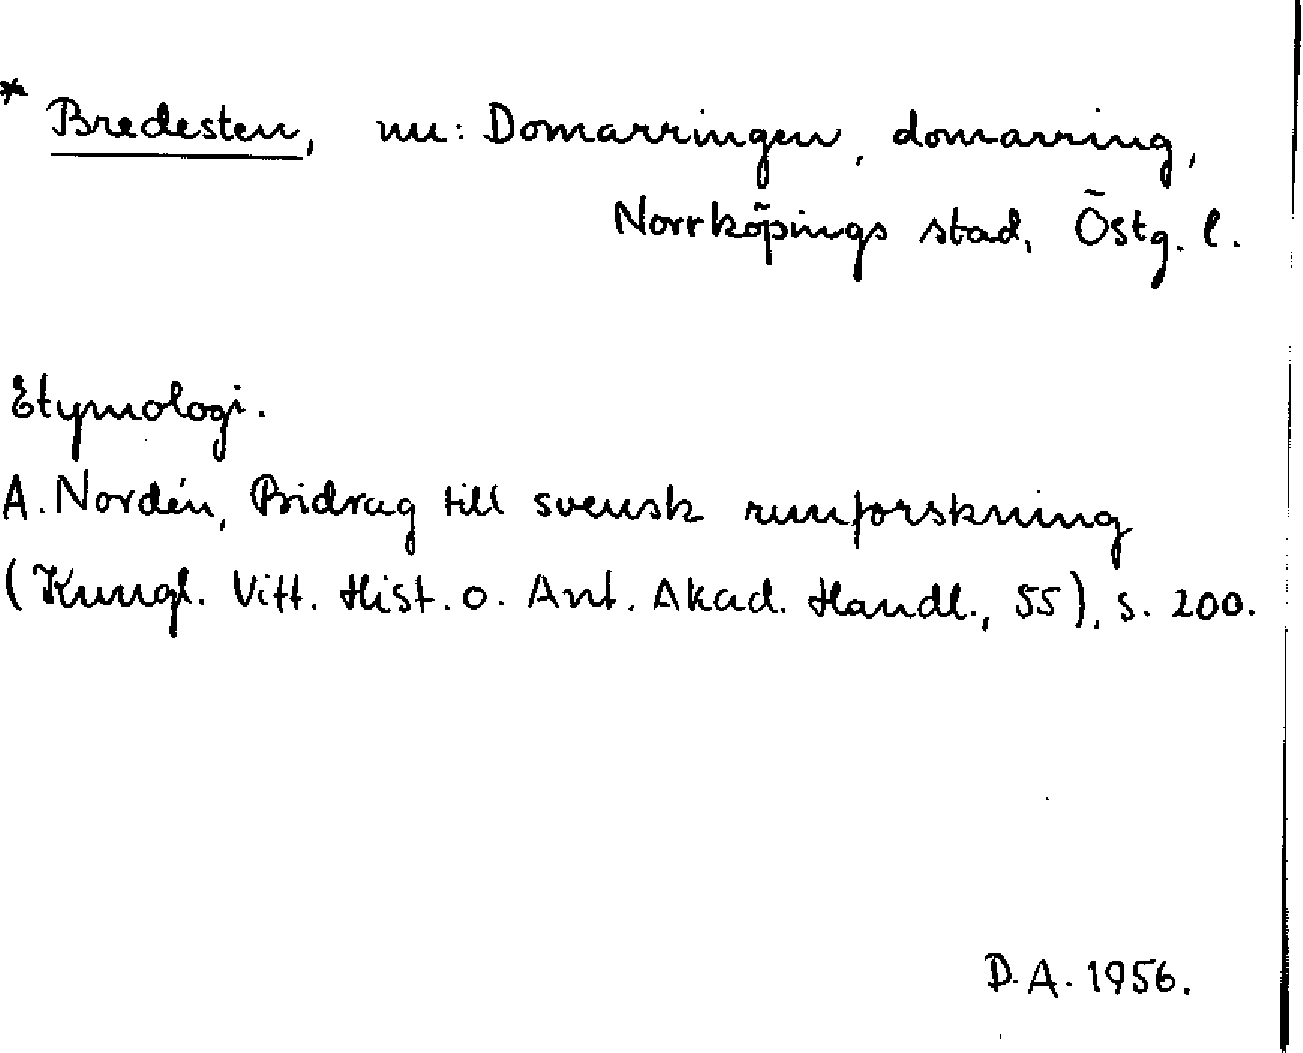 * Bredesten, nu: Domarringen, domarring,
Norrköpings stad, Östg. l.
Etymologi.
A. Nordén, Bidrag till svensk runforskning
(Kungl. Vitt. Hist. o. Ant. Akad. Handl., 55), s. 200.
D. A. 1956.